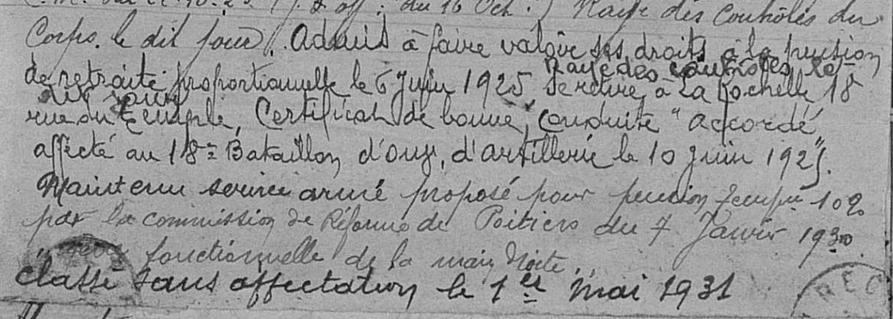 du 16 Oct. ) Rayé des contrôles du
Corps. le dit jour. Admis à faire valoir ses droits à la pension
de retraite proportionnelle le 6 juin 1925 Rayé des contrôles le
dit jour se retire à La Rochelle 18
rue du Temple, Certificat de bonne conduite "accordé"
affecté au 18e Bataillon d'ouv. d'artillerie le 10 juin 1925.
Maintenu service armé proposé pour pension temp. 10%
par la commission de Réforme de Poitiers du 7 Janvier 1930
fonctionnelle de la main droite.
classé sans affectation le 1er mai 1931
REC